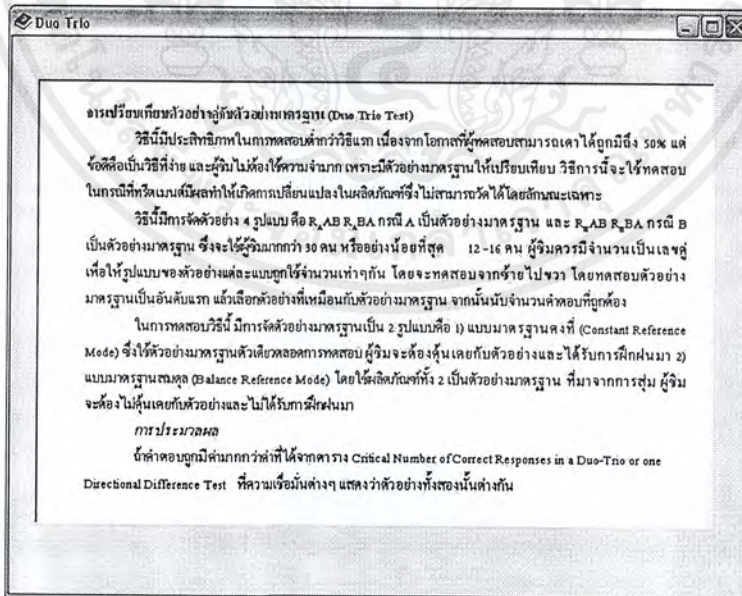 Duo Trio
การเปรียบเทียบตัวอย่างคู่กับตัวอย่างมาตรฐาน (Duo Trio Test)
วิธีนี้มีประสิทธิภาพในการทดสอบต่ำกว่าวิธีแรก เนื่องจากโอกาสที่ผู้ทดสอบสามารถเดาได้ถูกมีถึง 50% แต่
ข้อดีคือเป็นวิธีที่ง่าย และผู้ชิมไม่ต้องใช้ความจำมาก เพราะมีตัวอย่างมาตรฐานให้เปรียบเทียบ วิธีการนี้จะใช้ทดสอบ
ในกรณีที่ทรีตเมนต์มีผลทำให้เกิดการเปลี่ยนแปลงในผลิตภัณฑ์ซึ่งไม่สามารถวัดได้โดยลักษณะเฉพาะ
วิธีนี้มีการจัดตัวอย่าง 4 รูปแบบ คือ R_AAB R_ABA กรณี A เป็นตัวอย่างมาตรฐาน และ R_BAB R_BBA กรณี B
เป็นตัวอย่างมาตรฐาน ซึ่งจะใช้ผู้ชิมมากกว่า 30 คน หรืออย่างน้อยที่สุด 12 -16 คน ผู้ชิมควรมีจำนวนเป็นเลขคู่
เพื่อให้รูปแบบของตัวอย่างแต่ละแบบถูกใช้จำนวนเท่าๆกัน โดยจะทดสอบจากซ้ายไปขวา โดยทดสอบตัวอย่าง
มาตรฐานเป็นอันดับแรก แล้วเลือกตัวอย่างที่เหมือนกับตัวอย่างมาตรฐาน จากนั้นนับจำนวนคำตอบที่ถูกต้อง
ในการทดสอบวิธีนี้ มีการจัดตัวอย่างมาตรฐานเป็น 2 รูปแบบคือ 1) แบบมาตรฐานคงที่ (Constant Reference
Mode) ซึ่งใช้ตัวอย่างมาตรฐานตัวเดียวตลอดการทดสอบ ผู้ชิมจะต้องคุ้นเคยกับตัวอย่างและได้รับการฝึกฝนมา 2)
แบบมาตรฐานสมดุล (Balance Reference Mode) โดยใช้ผลิตภัณฑ์ทั้ง 2 เป็นตัวอย่างมาตรฐาน ที่มาจากการสุ่ม ผู้ชิม
จะต้องไม่คุ้นเคยกับตัวอย่างและไม่ได้รับการฝึกฝนมา
การประมวลผล
ถ้าคำตอบถูกมีค่ามากกว่าค่าที่ได้จากตาราง Critical Number of Correct Responses in a Duo-Trio or one
Directional Difference Test ที่ความเชื่อมั่นต่างๆ แสดงว่าตัวอย่างทั้งสองนั้นต่างกัน